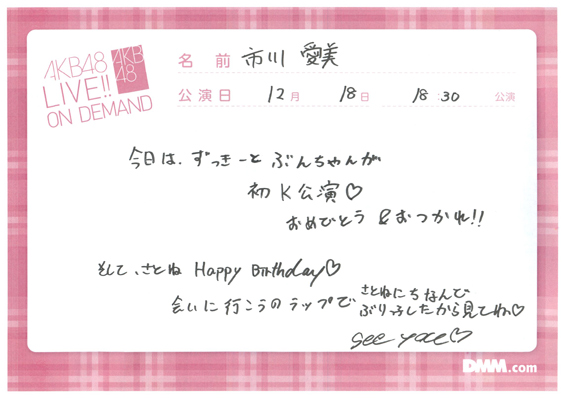 AKB48
LIVE!!
ON DEMAND
AKB
48
名前 市川 愛美
公演日 12月 18日 18:30 公演
今日は、ずっきーと ぶんちゃんが
初 K 公演♡
おめでとう &おつかれ!!
そして、さとね Happy Birthday♡
会いに行こうのラップで さとねにちなんで
ぶりっ子したから見てね♡
see you♡
DMM.com